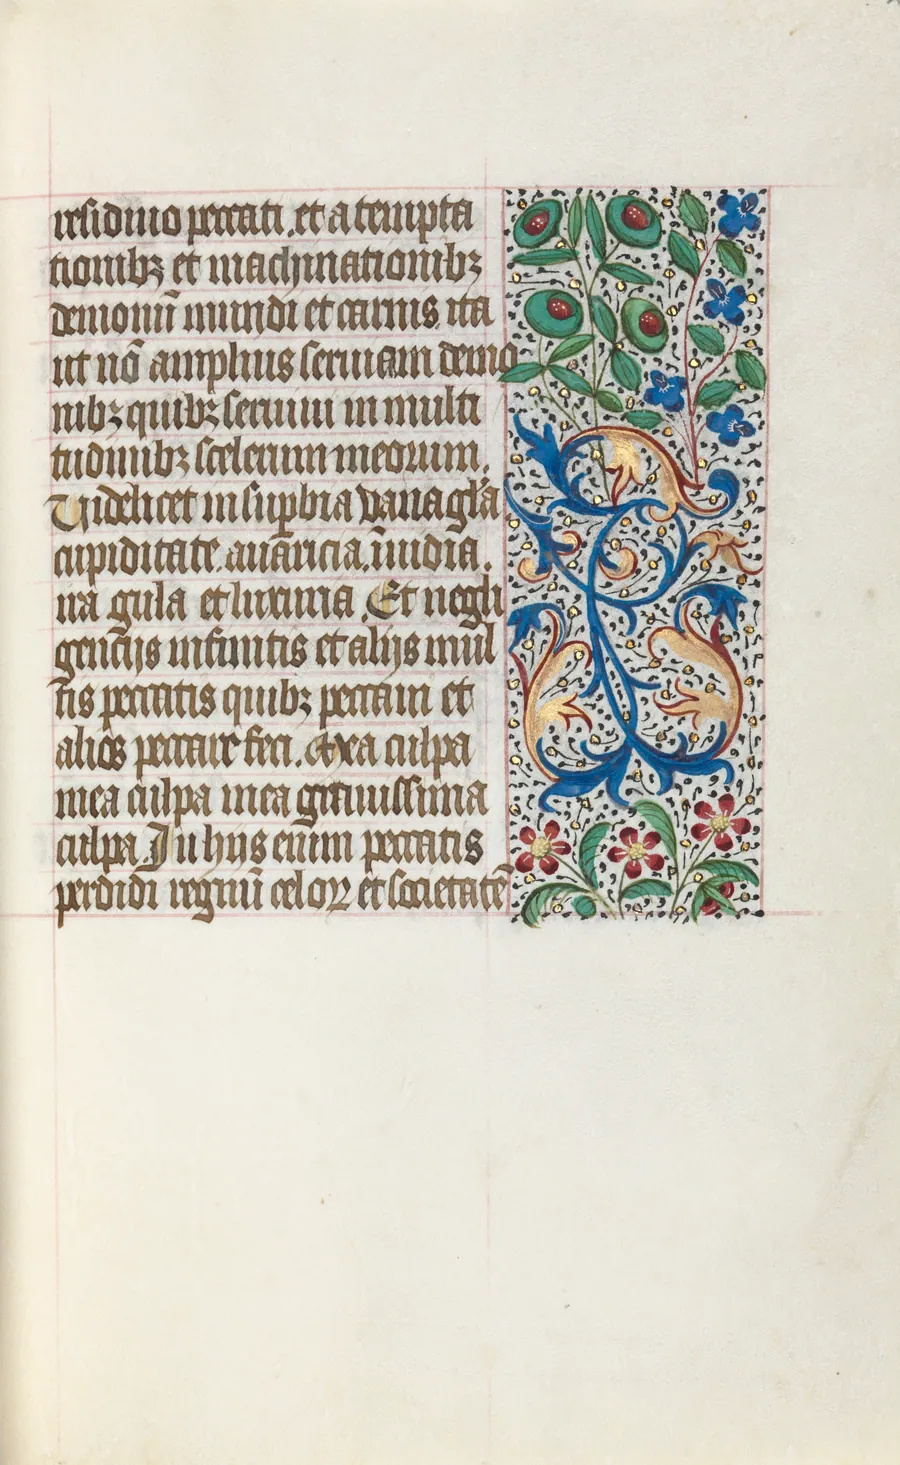 residuio peccati. et a tempta
tionibꝫ et machinationibꝫ
demoniū mundi et carnis. ita
ut nō amplius seruiam demo
nibꝫ quibꝫ seruiui in multi
tudinibꝫ scelerum meorum.
Videlicet in suꝑbia vana gl̄a
cupiditate. auaricia. īuidia.
ira gula et luxuria Et negli
genc̄ijs infinitis et alijs mul
tis peccatis quibꝫ peccaui et
alios peccare feci. Mea culpa
mea culpa mea grauissima
culpa. In hijs enim peccatis
perdidi regnū celoꝝ et societatē